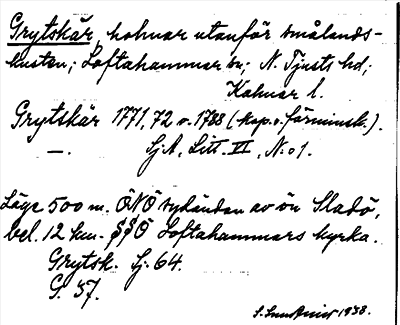 Grytskär, holmar utanför smålands-
kusten; Loftahammar sn; N. Tjusts hd;
Kalmar l.
Grytskär 1771, 72, o. 1788 (kop. o. förminsk.).
—. Sj.A, Litt. VI, N:o 1.
Läge 500 m. ÖNÖ sydändan av ön Sladö,
bel. 12 km. SSÖ Loftahammars kyrka.
Grytsk. Sj. 64.
G. 37.
1938.